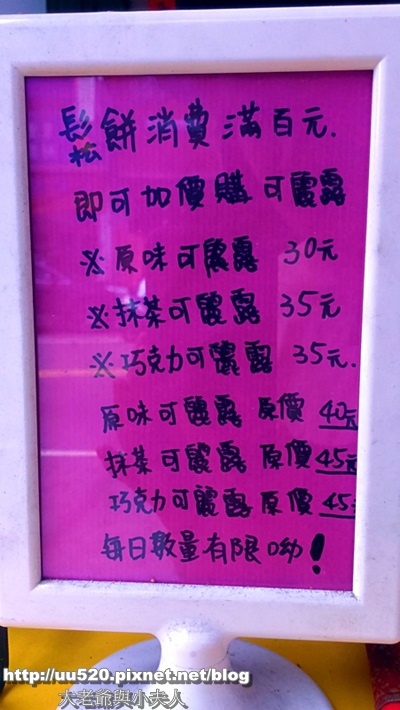 鬆餅消費滿百元.
即可加價購可麗露
※原味可麗露 30元
※抹茶可麗露 35元
※巧克力可麗露 35元.
原味可麗露 原價 40元
抹茶可麗露 原價 45元
巧克力可麗露 原價 45元
每日數量有限呦!
http://uu520.pixnet.net/blog
大老爺與小夫人